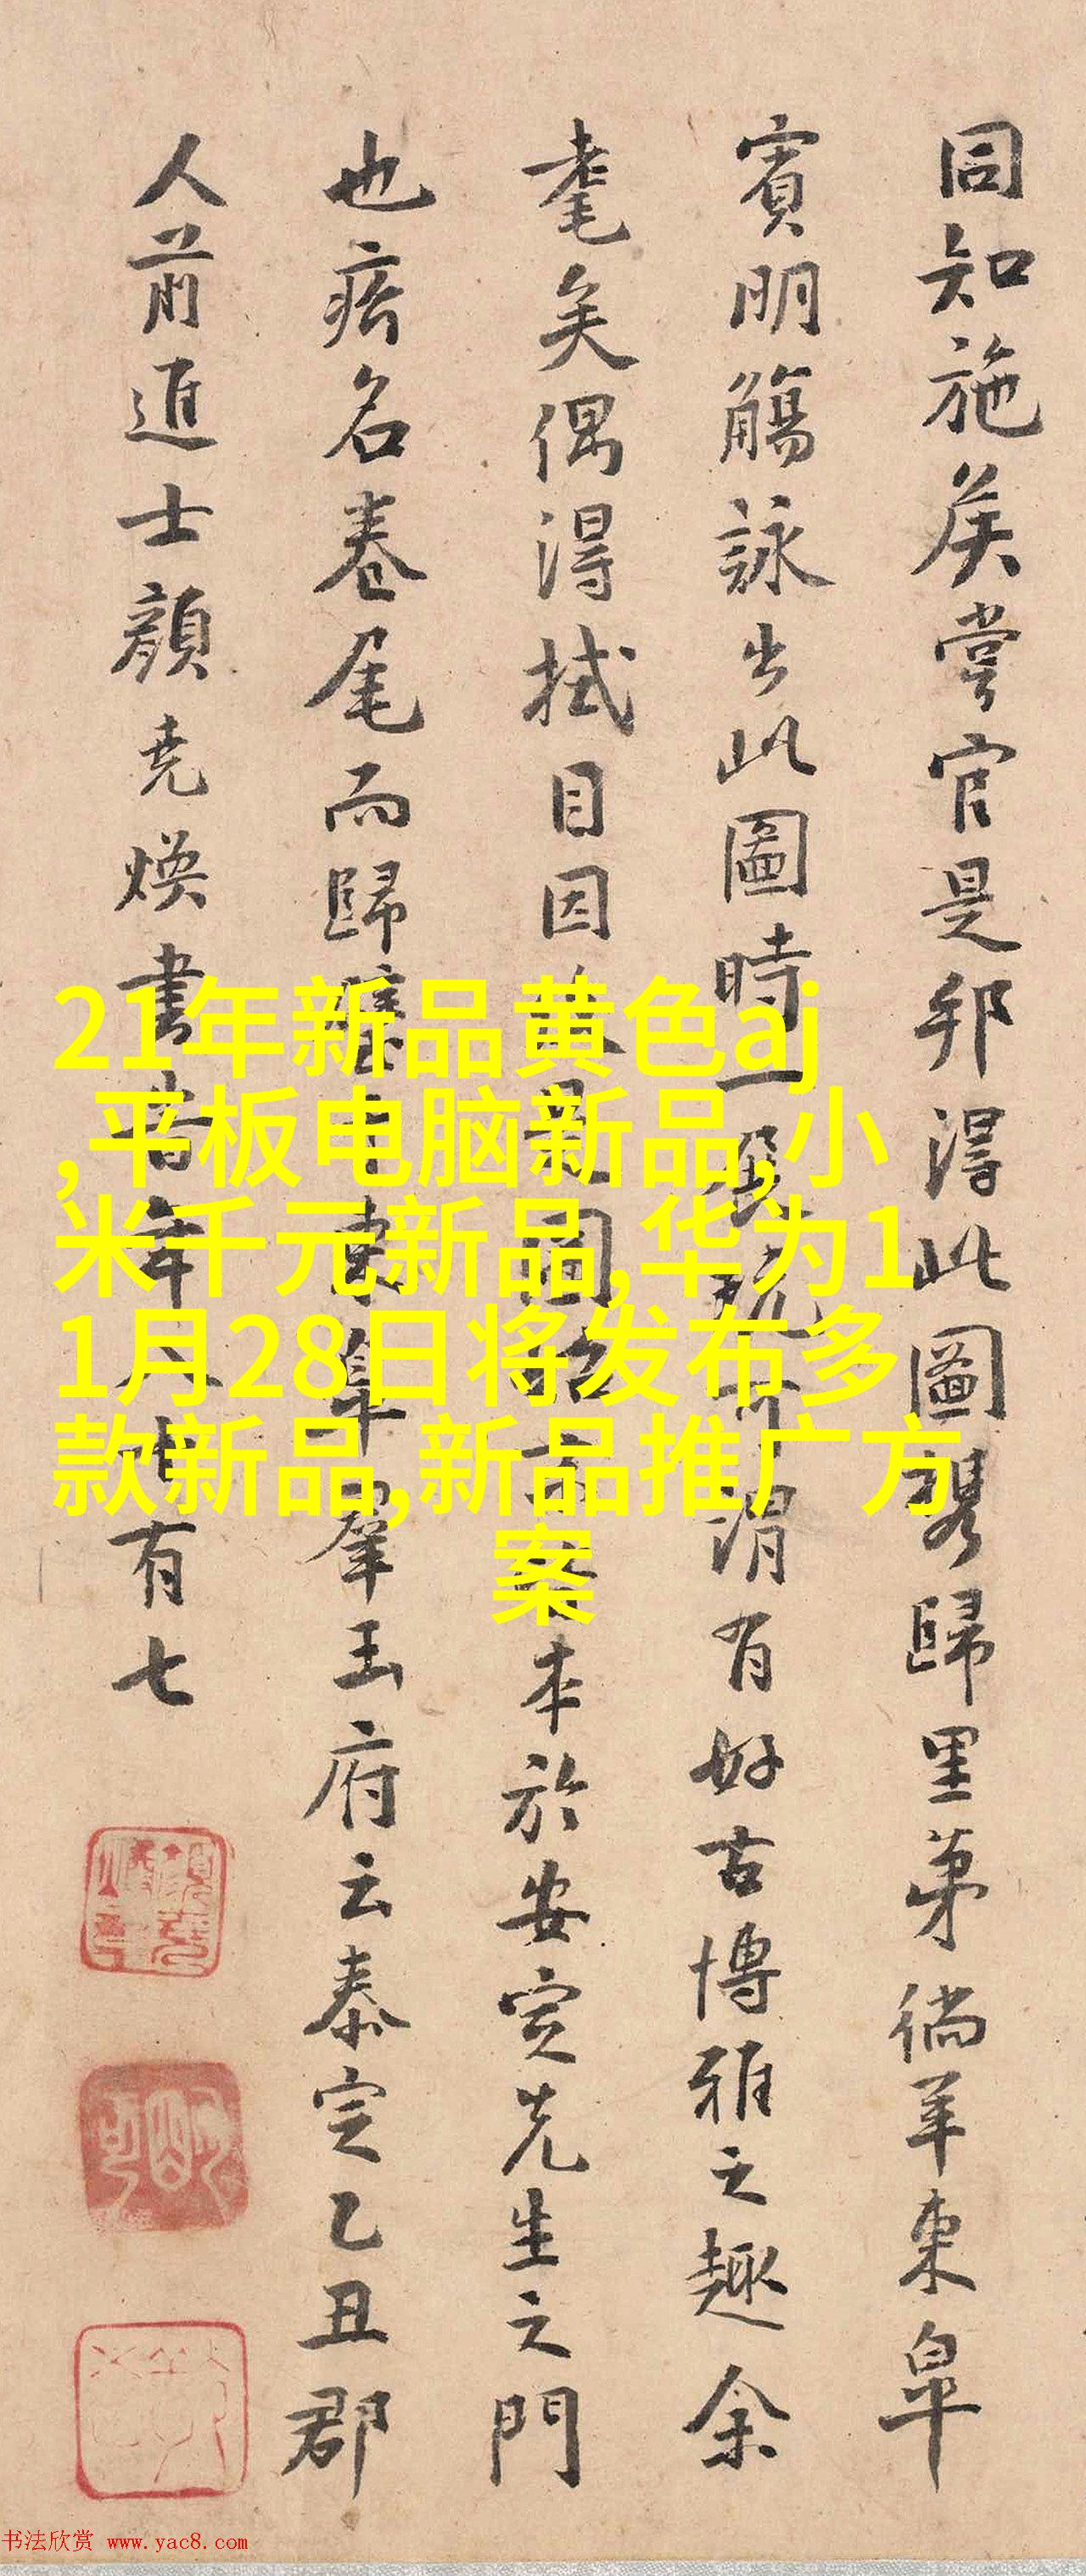 同知施侯嘗官是邦得此圖携歸里第徜羊東皋
賓明觴詠出此圖時一展玩可謂有好古博雅之趣余
耄矣偶得拭目因圖本於安定先生之門
也疥名卷尾而歸東皋羣玉府云泰定乙丑郡
人前進士顏堯煥書時年八十有七
21年新品黄色aj
,平板电脑新品,小
米千元新品,华为1
1月28日将发布多
款新品,新品推广方
案
书法欣赏 www.yac8.com